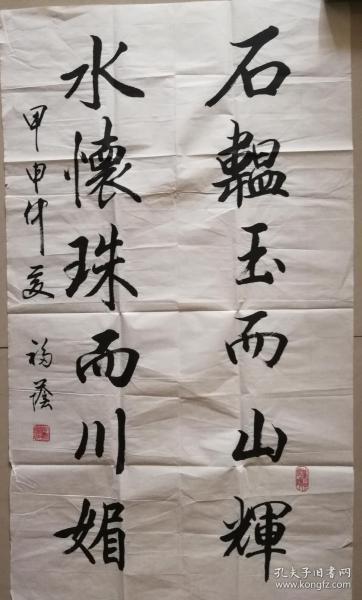 石韞玉而山輝
水懷珠而川媚
甲申仲夏
福蔭
孔夫子旧书网
www.kongfz.com